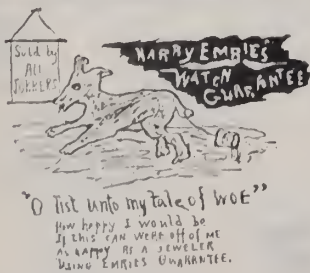 Sold by
All
JOBBERS
HARRY EMBIES
WATCH
GUARANTEE
"O list unto my tale of WOE"
How happy I would be
If this CAN WERE off of ME
As happy AS A JEWELER
USING EMRIES GUARANTEE.